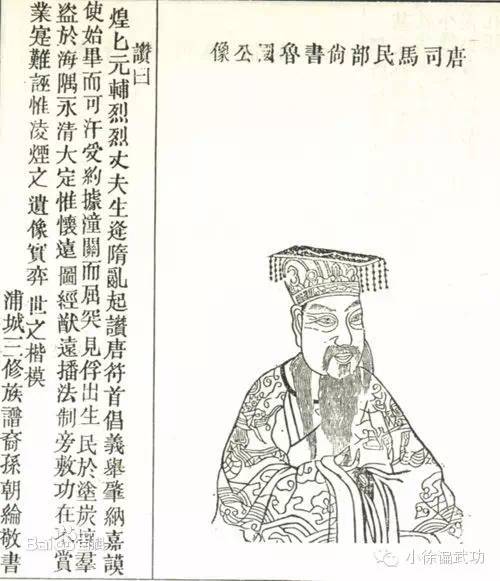 唐司馬民部尚書魯國公像
讚曰
煌匕元輔烈烈丈夫生逢隋亂起讚唐符首倡義舉肇納嘉謨
使始畢而可汗受約據潼關而屈突見俘出生民於塗炭羣
盜於海隅永清大定惟懷遠圖經猷遠播法制旁敷功在賞
業寔難誣惟凌煙之遺像實奕世之楷模
浦城三修族譜裔孫朝綸敬書
小徐谥武功